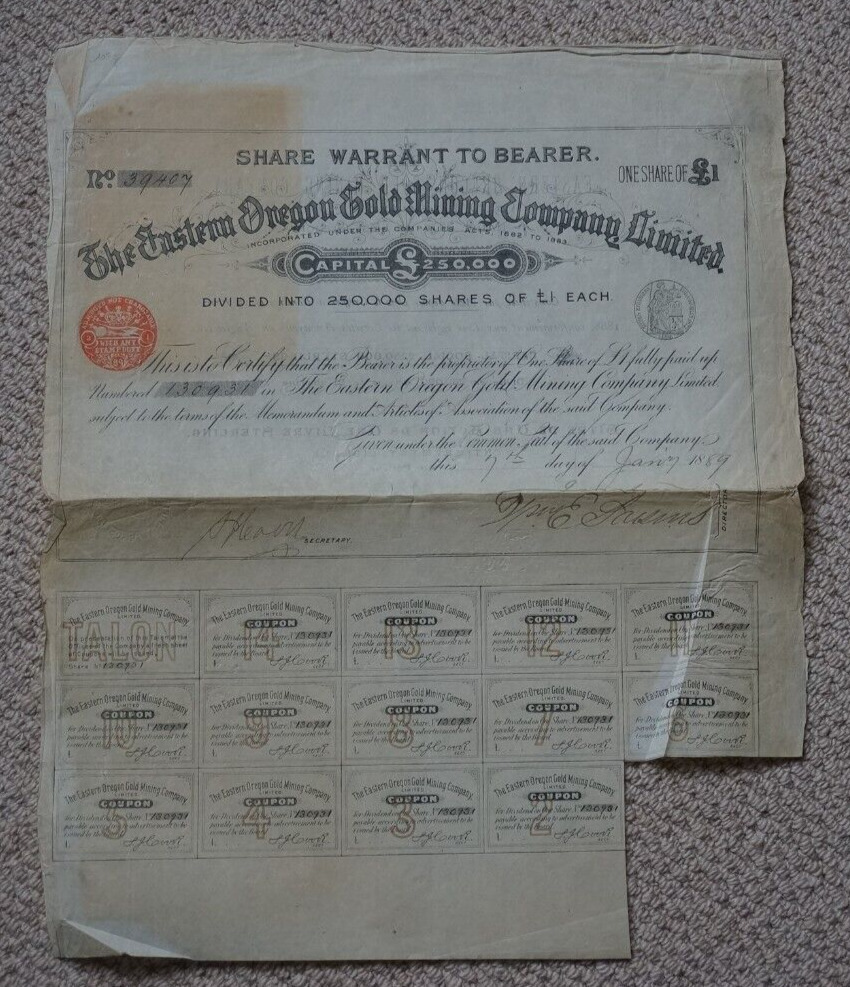 SHARE WARRANT TO BEARER.
No. 39407
ONE SHARE OF £1
The Eastern Oregon Gold Mining Company Limited.
INCORPORATED UNDER THE COMPANIES ACTS, 1862 TO 1883.
CAPITAL £250,000
DIVIDED INTO 250,000 SHARES OF £1 EACH.
This is to Certify that the Bearer is the proprietor of One Share of £1 fully paid up
Numbered 130931 in The Eastern Oregon Gold Mining Company Limited
subject to the terms of the Memorandum and Articles of Association of the said Company.
Given under the Common Seal of the said Company,
this 7th day of Jany 1889
SECRETARY.
DIRECTORS
The Eastern Oregon Gold Mining Company
LIMITED
TALON
Share No 130931
The Eastern Oregon Gold Mining Company
LIMITED
COUPON
14
for Dividend on the Share No 130931
payable according to advertisement to be
issued by the
The Eastern Oregon Gold Mining Company
LIMITED
COUPON
13
for Dividend on the Share No 130931
payable according to advertisement to be
issued by the
The Eastern Oregon Gold Mining Company
LIMITED
COUPON
12
for Dividend on the Share No 130931
payable according to advertisement to be
issued by the
The Eastern Oregon Gold Mining Company
LIMITED
COUPON
11
for Dividend on the Share No 130931
payable according to advertisement to be
issued by the
The Eastern Oregon Gold Mining Company
LIMITED
COUPON
10
for Dividend on the Share No 130931
payable according to advertisement to be
issued by the
The Eastern Oregon Gold Mining Company
LIMITED
COUPON
9
for Dividend on the Share No 130931
payable according to advertisement to be
issued by the
The Eastern Oregon Gold Mining Company
LIMITED
COUPON
8
for Dividend on the Share No 130931
payable according to advertisement to be
issued by the
The Eastern Oregon Gold Mining Company
LIMITED
COUPON
7
for Dividend on the Share No 130931
payable according to advertisement to be
issued by the
The Eastern Oregon Gold Mining Company
LIMITED
COUPON
6
for Dividend on the Share No 130931
payable according to advertisement to be
issued by the
The Eastern Oregon Gold Mining Company
LIMITED
COUPON
5
for Dividend on the Share No 130931
payable according to advertisement to be
issued by the
The Eastern Oregon Gold Mining Company
LIMITED
COUPON
4
for Dividend on the Share No 130931
payable according to advertisement to be
issued by the
The Eastern Oregon Gold Mining Company
LIMITED
COUPON
3
for Dividend on the Share No 130931
payable according to advertisement to be
issued by the
The Eastern Oregon Gold Mining Company
LIMITED
COUPON
2
for Dividend on the Share No 130931
payable according to advertisement to be
issued by the